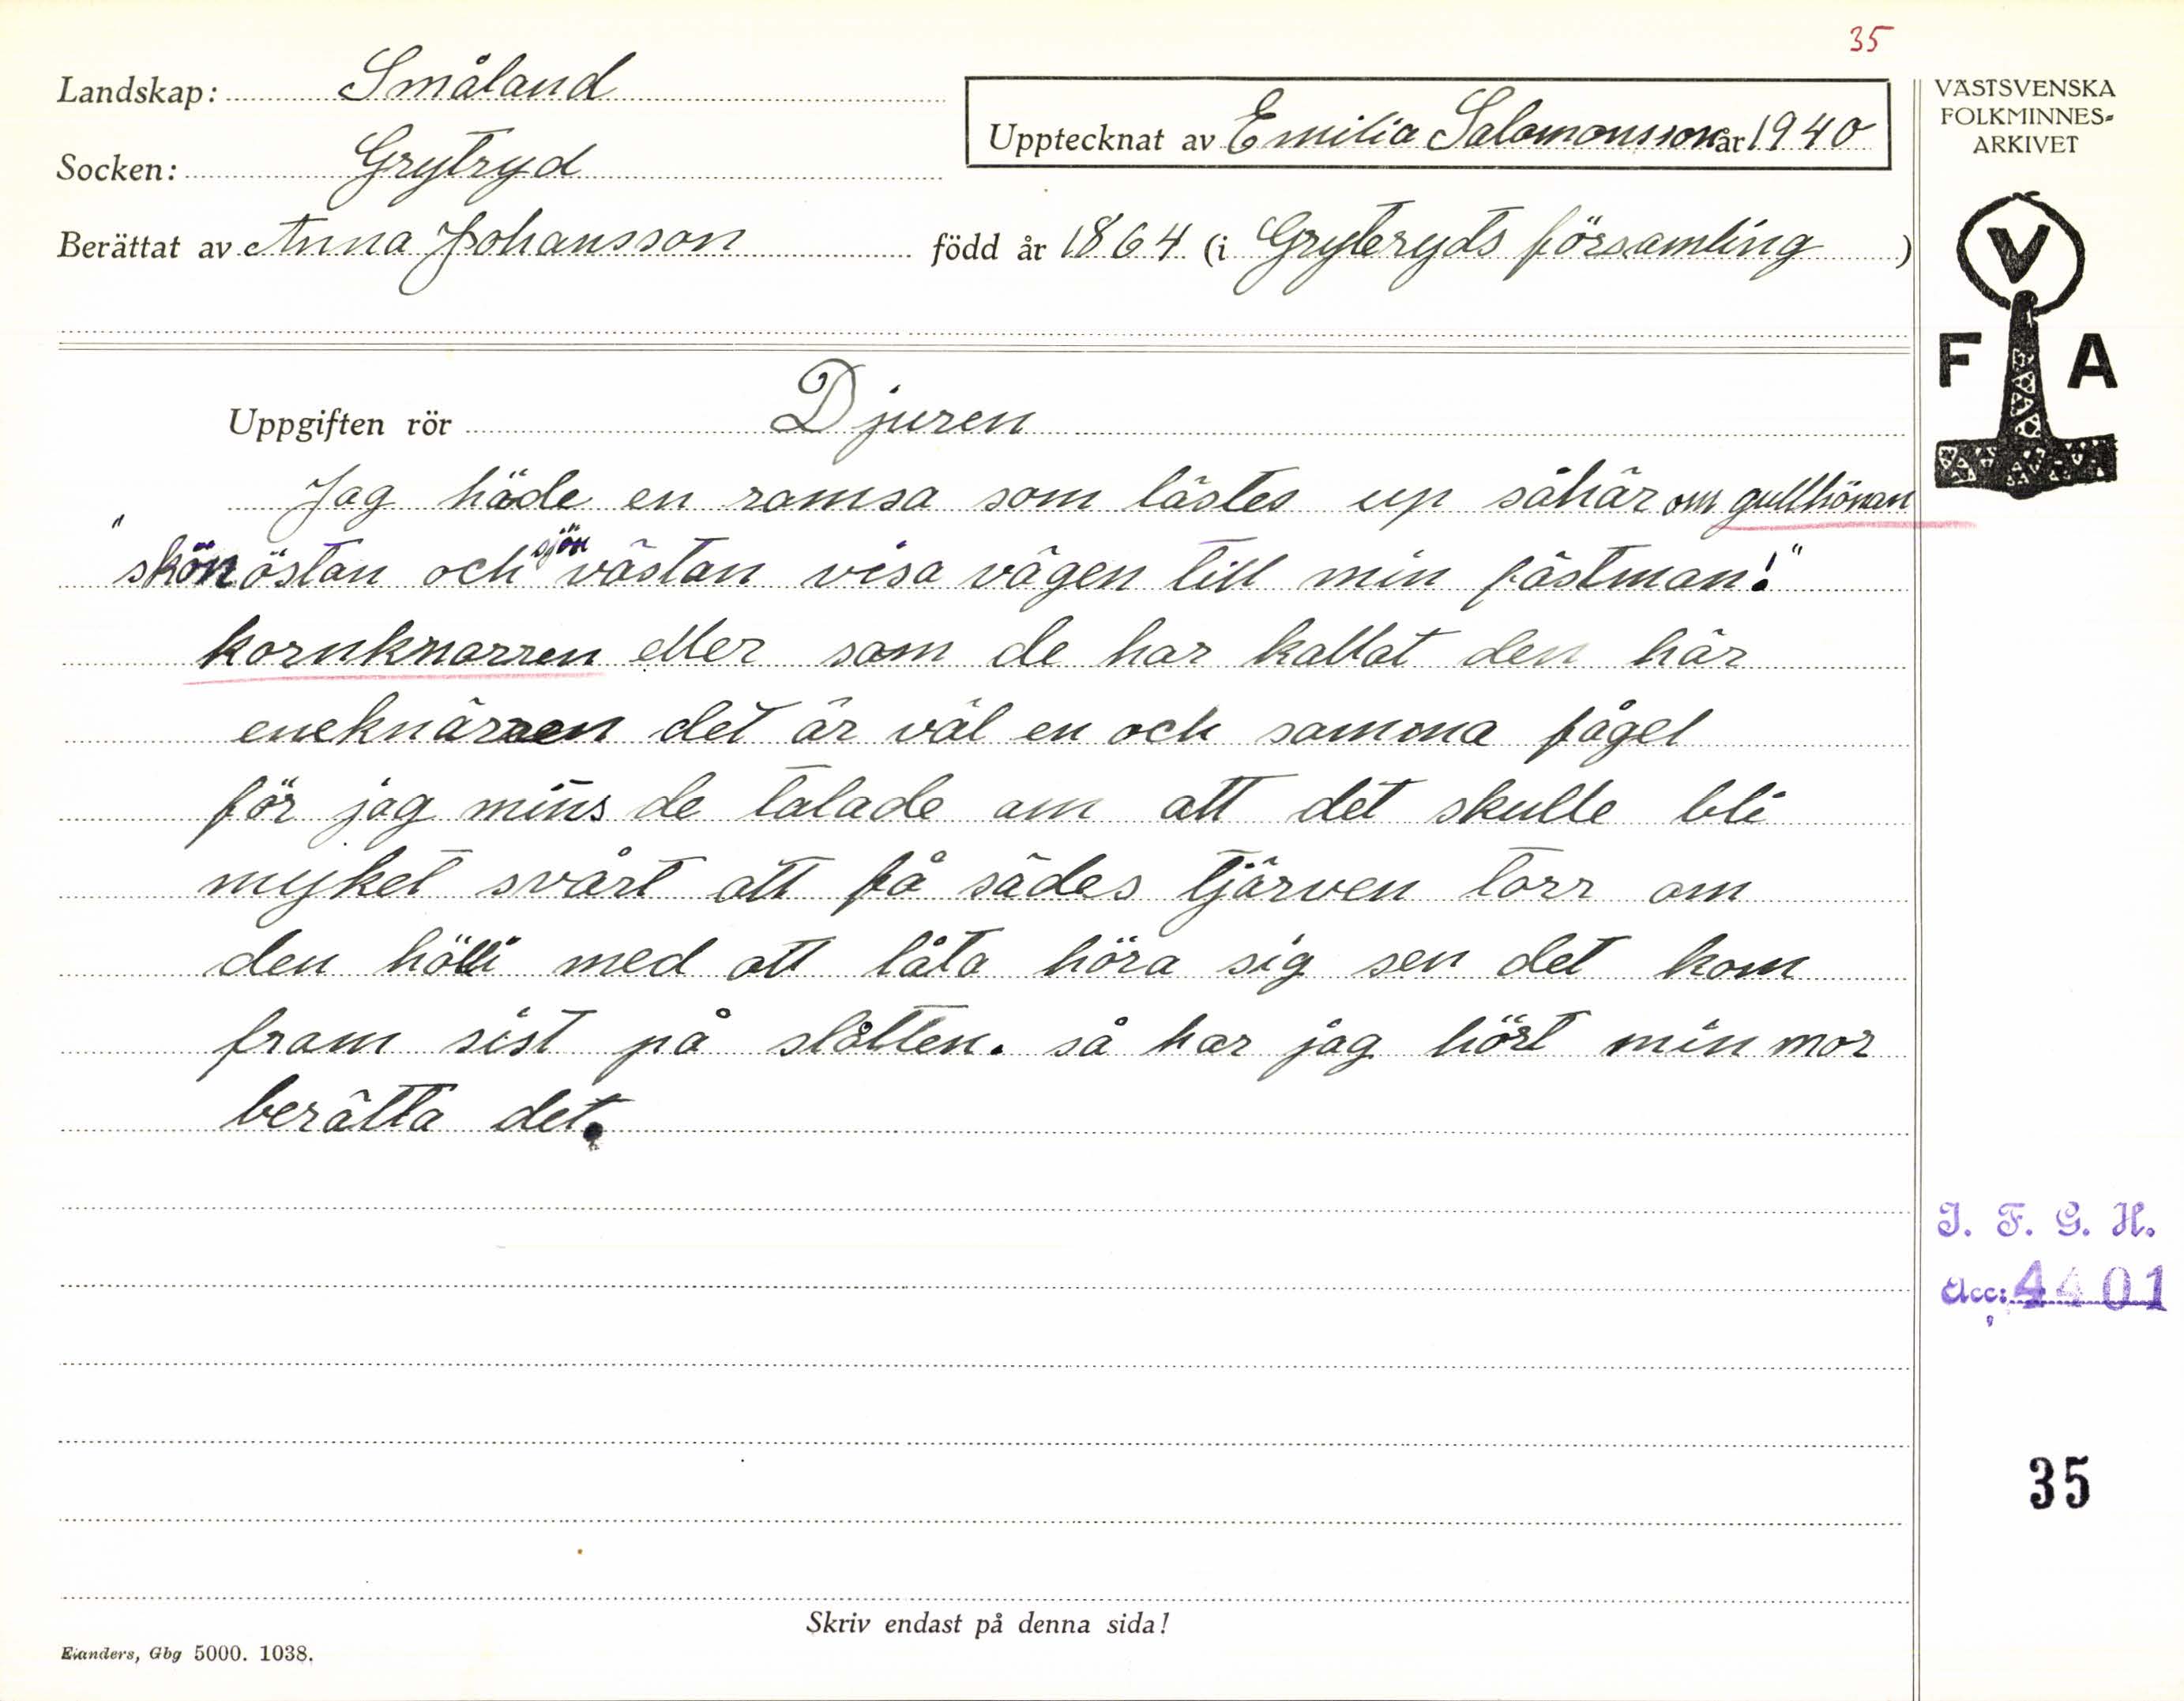 35
Landskap: Småland
Upptecknat av Emilia Salomonsson år 1940
Socken: Grytryd
Berättat av Anna Johansson född år 1864 (i Gryteryds församling)
VÄSTSVENSKA
FOLKMINNES-
ARKIVET
V
F A
Uppgiften rör Djuren
Jag häde en ramsa som lästes up såhär om gullhönan
"skön östan och sjön västan visa vägen till min fästman!"
kornknarren eller som de har kallat den här
eneknärren det är väl en och samma fågel
för jag mins de talade om att det skulle bli
myket svårt att få sädes tjärven torr om
den hölli med att låta höra sig sen det kom
fram sist på slåtten. så har jag hört min mor
berätta det.
I. F. G. H.
Acc: 4401
35
Skriv endast på denna sida!
Elanders, Gbg 5000. 1038.